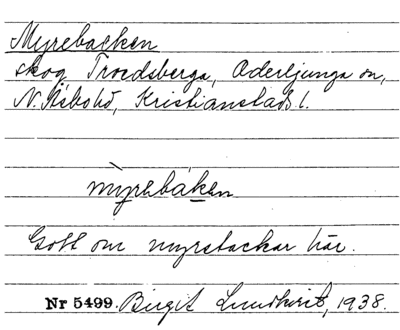 Myrebacken
skog, Troedsberga, Oderljunga sn,
N. Åsbohd, Kristianstads l.
mỳrebák̲en
Gott om myrstackar här.
Nr 5499. Birgit Lundkvist, 1938.